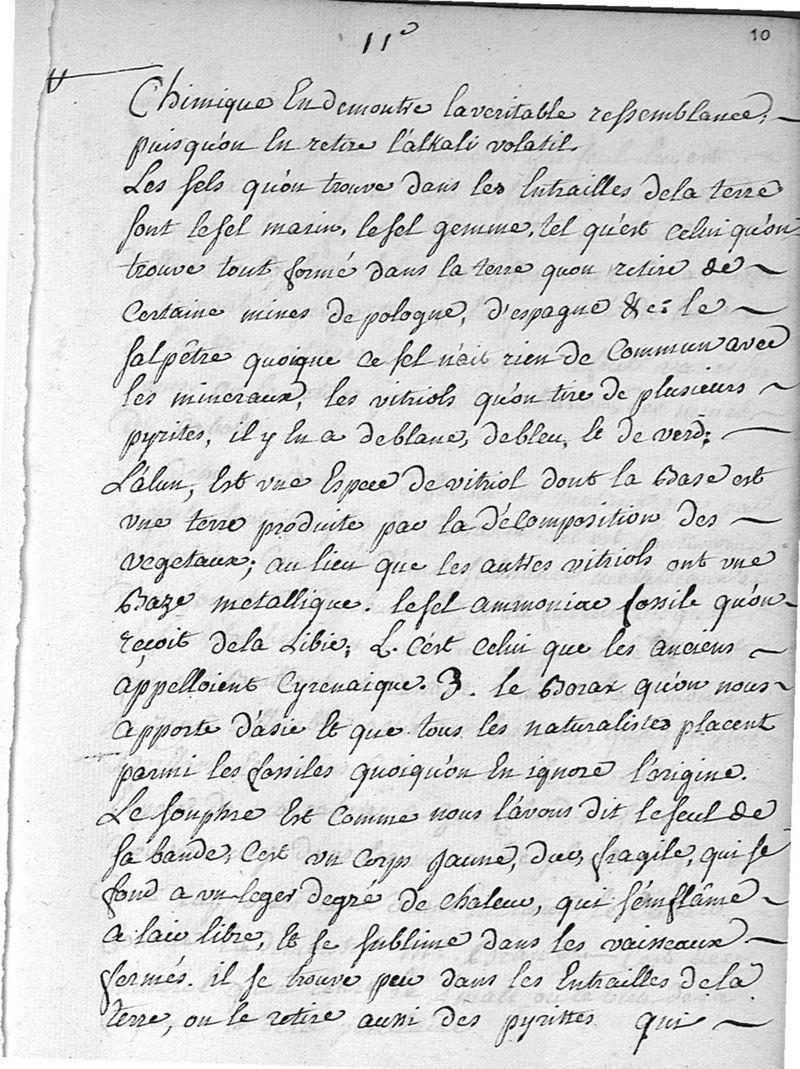 11e
10
Chimique En demontre la veritable ressemblance,
puisqu'on En retire l'alkali volatil.
Les sels qu'on trouve dans les Entrailles de la terre
sont le sel marin, le sel gemme, tel qu'est celui qu'on
trouve tout formé dans la terre quon retire de
Certaine mines de pologne, d'espagne &c: le
salpêtre quoique ce sel n'ait rien de Commun avec
les mineraux, les vitriols qu'on tire de plusieurs
pyrites, il y En a de blanc, de bleu, Et de verd;
L'alun, Est une Espece de vitriol dont la Base est
une terre produite par la décomposition des
vegetaux; au lieu que les autres vitriols ont une
Baze metallique. le sel ammoniac fossile qu'on
reçoit de la Libie; &. C'est celui que les anciens
appelloient Cyrenaique. 3. le Borax qu'on nous
apporte d'asie Et que tous les naturalistes placent
parmi les fossiles quoiqu'on En ignore l'origine.
Le souphre Est comme nous l'avons dit le seul de
sa bande, C'est un Corps jaune, dur, fragile, qui se
fond a un leger degré de chaleur, qui s'emflâme
a l'air libre, Et se sublime dans les vaisseaux
fermés. il se trouve peu dans les Entrailles de la
terre, on le retire aussi des pyrittes qui